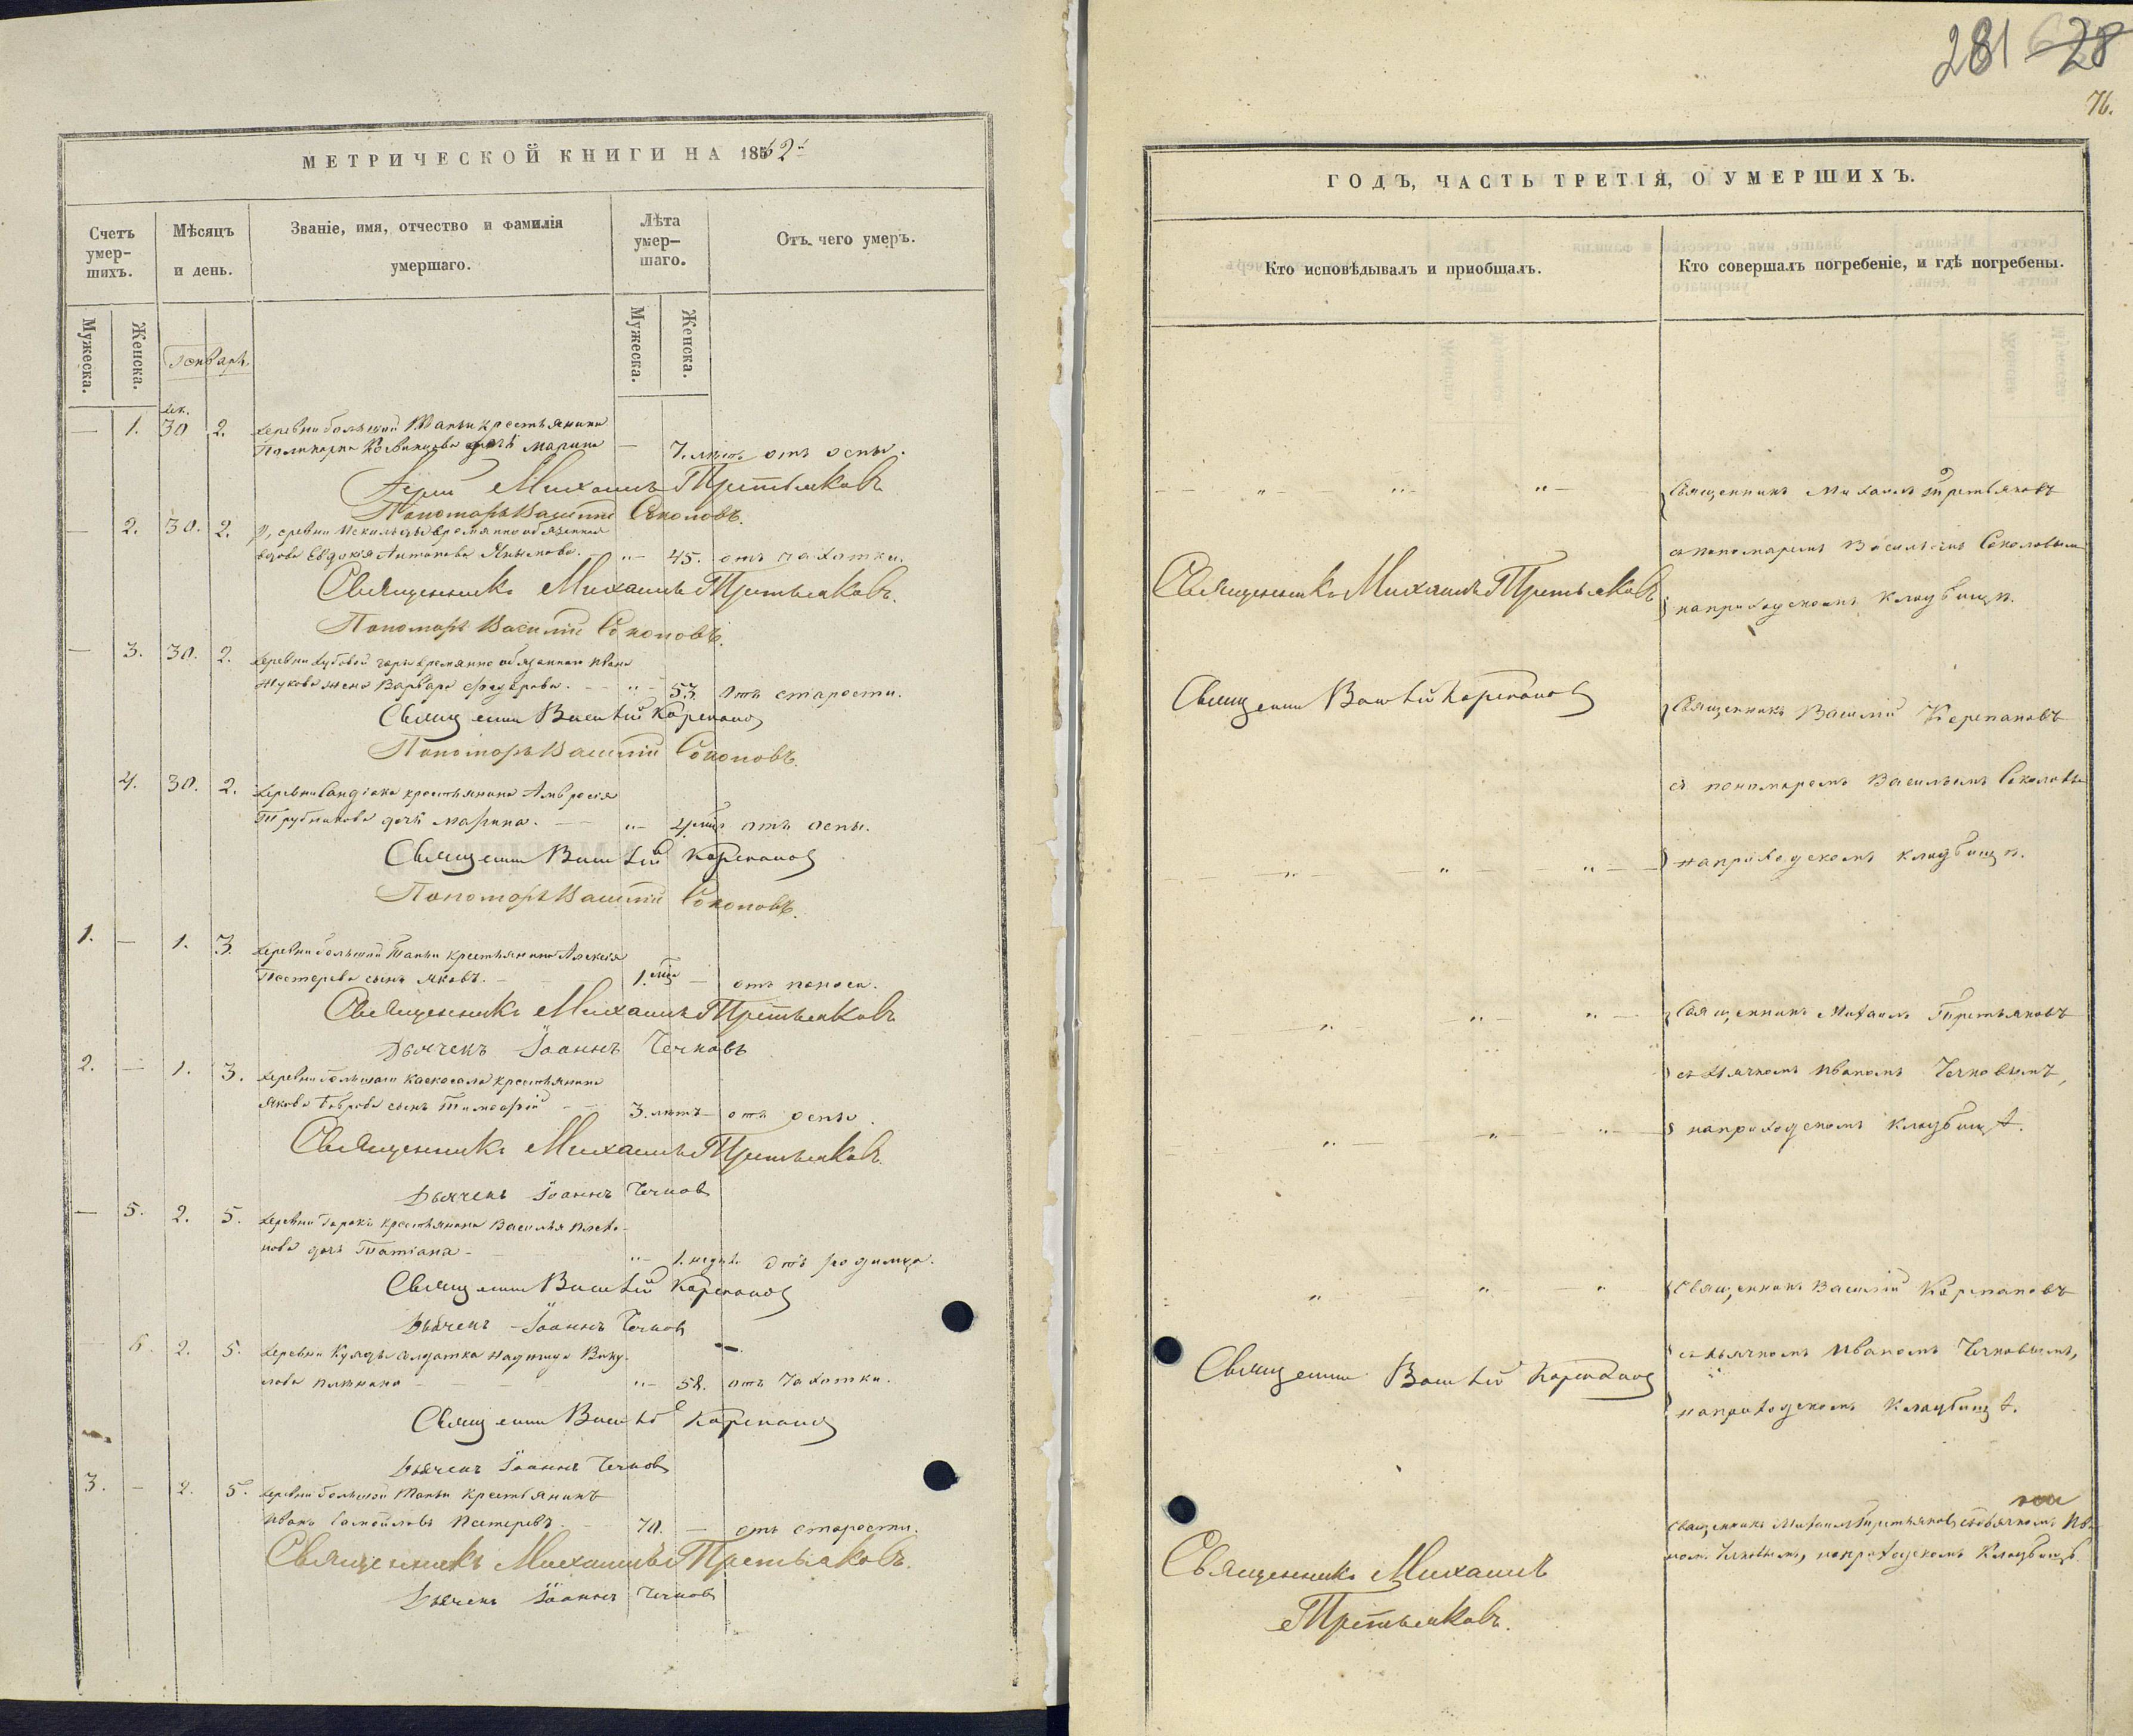 МЕТРИЧЕСКОЙ КНИГИ НА 1862й
Счетъ умер-шихъ.
Мужеска.
Женска.
Мѣсяцъ и день.
Званіе, имя, отчество и фамилія умершаго.
Лѣта умер-шаго.
Мужеска.
Женска.
Отъ чего умеръ.
Январь.
Дек.
— 1. 30 2. Деревни большой Талпи крестьянина
дочь Марина — 7. лѣтъ отъ оспы.
Іерей Михаилъ Третьяковъ
Пономарь Василій Соколовъ.
— 2. 30. 2. временно обязанная
вдова Евдокія Антипова 45. отъ чахотки.
Священникъ Михаилъ Третьяковъ.
Пономарь Василій Соколовъ.
— 3. 30. 2. Деревни Дубовой горы временно обязаннаго Ивана
Жукова жена Варвара Федорова. 53. отъ старости.
Священникъ Василій Карепановъ
Пономарь Василій Соколовъ.
4. 30. 2. Деревни крестьянина Амвросія
Трубникова дочь Марина. 4. отъ оспы.
Священникъ Василій Карепановъ
Пономарь Василій Соколовъ.
1. — 1. 3. Деревни большой Талпи крестьянина Алексія
Пестерева сынъ Яковъ. 1. — отъ поноса.
Священникъ Михаилъ Третьяковъ
Дьячекъ Іоаннъ Чечковъ
2. — 1. 3. Деревни крестьянина
Якова Боброва сынъ Тимофей 3. лѣтъ — отъ оспы.
Священникъ Михаилъ Третьяковъ.
Дьячекъ Іоаннъ Чечковъ
— 5. 2. 5. Деревни крестьянина Василья
дочь Татіана — 1. отъ родимца.
Священникъ Василій Карепановъ
Дьячекъ Іоаннъ Чечковъ
6. 2. 5. Деревни солдатка Надежда
58. отъ чахотки.
Священникъ Василій Карепановъ
Дьячекъ Іоаннъ Чечковъ
3. — 2. 5. Деревни большой Талпи крестьянинъ
Иванъ Самойловъ Пестеревъ. 70. — отъ старости.
Священникъ Михаилъ Третьяковъ.
Дьячекъ Іоаннъ Чечковъ
281
28
76.
ГОДЪ, ЧАСТЬ ТРЕТІЯ, О УМЕРШИХЪ.
Кто исповѣдывалъ и пріобщалъ.
Кто совершалъ погребеніе, и гдѣ погребены.
Священникъ Михаилъ Третьяковъ
съ пономаремъ Васильемъ Соколовымъ
Священникъ Михаилъ Третьяковъ
на приходскомъ кладбищѣ.
Священникъ Василій Карепановъ
Священникъ Василій Карепановъ
съ пономаремъ Васильемъ Соколовымъ
на приходскомъ кладбищѣ.
Священникъ Михаилъ Третьяковъ
съ дьячкомъ Иваномъ Чечковымъ,
на приходскомъ кладбищѣ.
Священникъ Василій Карепановъ
съ дьячкомъ Иваномъ Чечковымъ,
Священникъ Василій Карепановъ
на приходскомъ кладбищѣ.
Священникъ Михаилъ Третьяковъ съ дьячкомъ Ива-
номъ Чечковымъ, на приходскомъ кладбищѣ.
Священникъ Михаилъ
Третьяковъ.